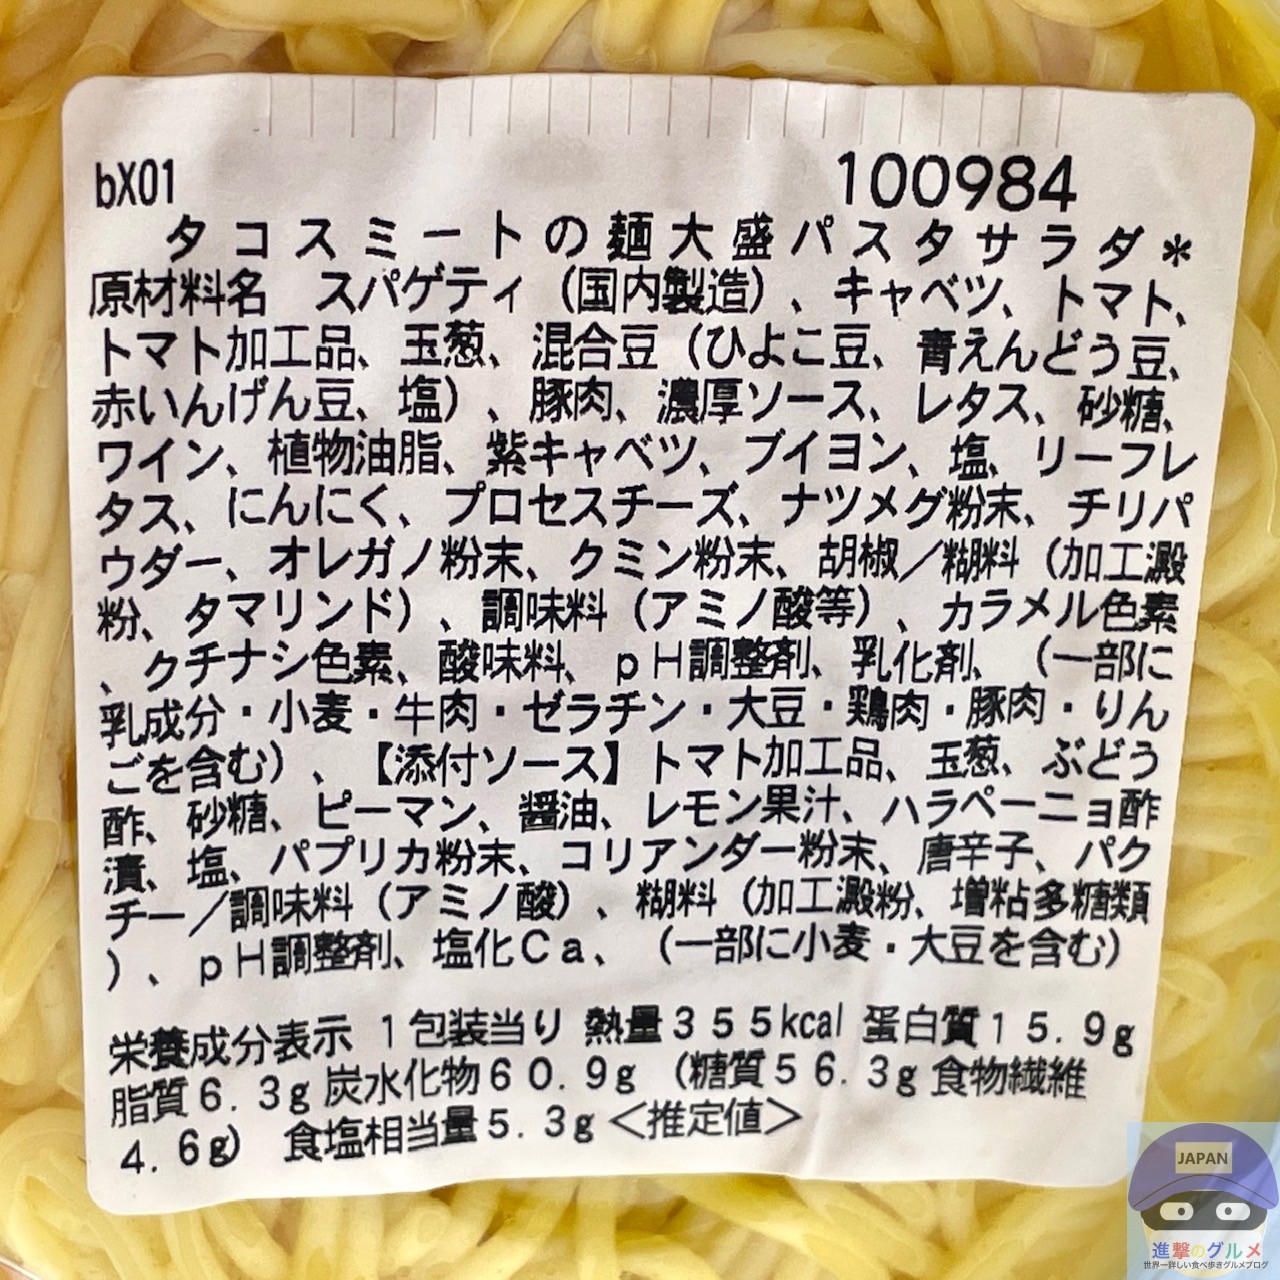 bX01 100984
タコスミートの麺大盛パスタサラダ＊
原材料名　スパゲティ（国内製造）、キャベツ、トマト、
トマト加工品、玉葱、混合豆（ひよこ豆、青えんどう豆、
赤いんげん豆、塩）、豚肉、濃厚ソース、レタス、砂糖、
ワイン、植物油脂、紫キャベツ、ブイヨン、塩、リーフレ
タス、にんにく、プロセスチーズ、ナツメグ粉末、チリパ
ウダー、オレガノ粉末、クミン粉末、胡椒／糊料（加工澱
粉、タマリンド）、調味料（アミノ酸等）、カラメル色素
、クチナシ色素、酸味料、ｐＨ調整剤、乳化剤、（一部に
乳成分・小麦・牛肉・ゼラチン・大豆・鶏肉・豚肉・りん
ごを含む）、【添付ソース】トマト加工品、玉葱、ぶどう
酢、砂糖、ピーマン、醤油、レモン果汁、ハラペーニョ酢
漬、塩、パプリカ粉末、コリアンダー粉末、唐辛子、パク
チー／調味料（アミノ酸）、糊料（加工澱粉、増粘多糖類
）、ｐＨ調整剤、塩化Ｃａ、（一部に小麦・大豆を含む）
栄養成分表示 １包装当り 熱量３５５kcal 蛋白質１５.９g
脂質６.３g 炭水化物６０.９g （糖質５６.３g 食物繊維
４.６g） 食塩相当量５.３g ＜推定値＞
JAPAN
進撃のグルメ
世界一詳しい食べ歩きグルメブログ